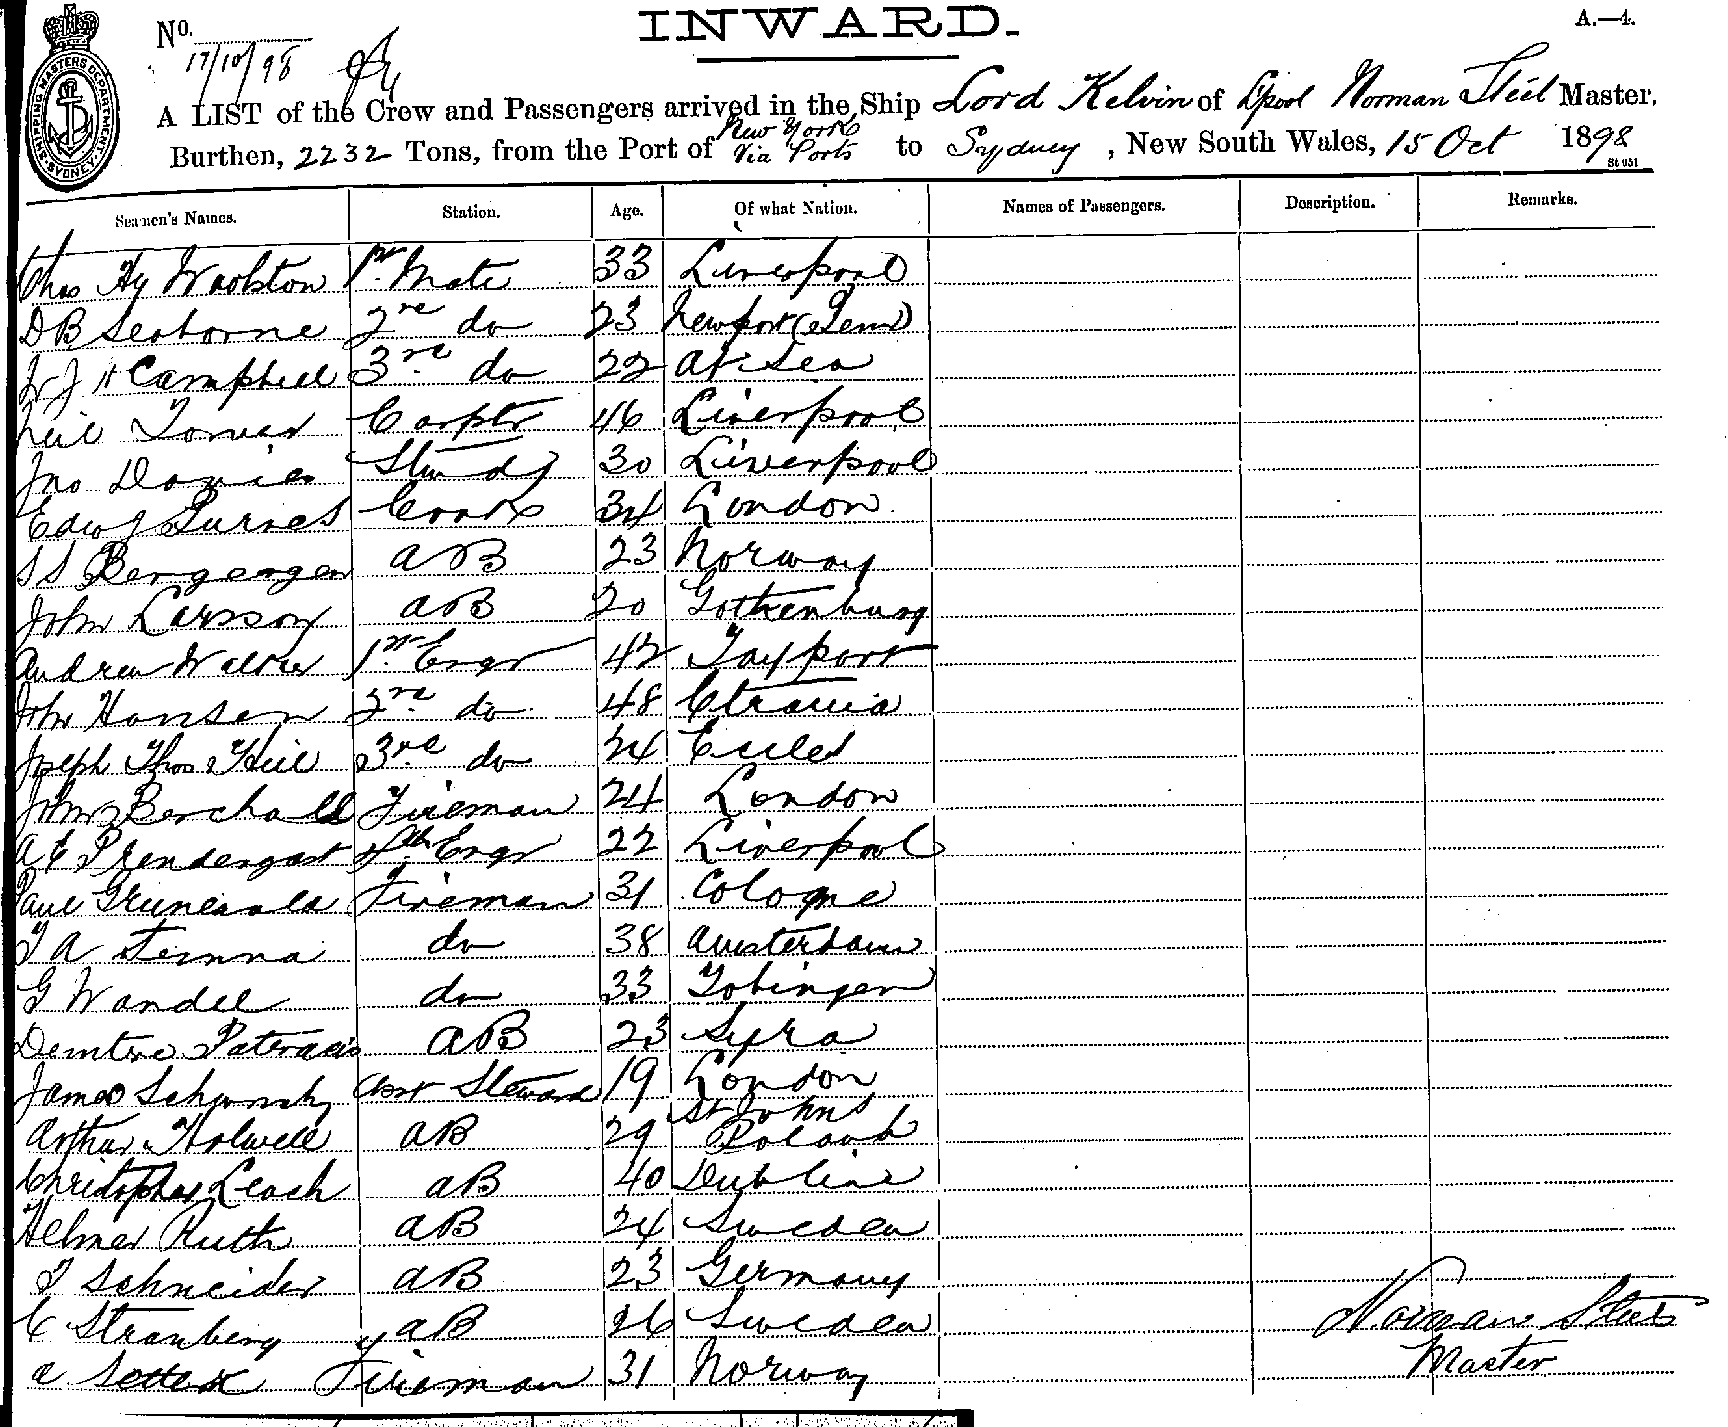 INWARD.
A.—4.
No.
17/10/98
SHIPPING MASTERS DEPARTMENT SYDNEY
A LIST of the Crew and Passengers arrived in the Ship Lord Kelvin of L'pool Norman Steel Master,
Burthen, 2232 Tons, from the Port of New York Via Ports to Sydney, New South Wales, 15 Oct 1898
St 951
Seamen's Names. Station. Age. Of what Nation. Names of Passengers. Description. Remarks.
Chas Hy Woolston 1st Mate 33 Liverpool
D B Seaborne 2nd do 23 Newport
J H Campbell 3rd do 22 At Sea
Neil Carptr 46 Liverpool
Jno Davies Stwd 30 Liverpool
Edwd Cook 34 London
S S AB 23 Norway
John Larsson AB 20 Gothenburg
Andrew Walker 1st Engr 42 Tayport
John Hansen 2nd do 48 
Joseph Thos 3rd do 24 
John Fireman 24 London
A E Prendergast 4th Engr 22 Liverpool
Paul Fireman 31 Cologne
do 38 Amsterdam
G Wandel do 33 Tobingen
AB 23 Syra
James Asst Steward 19 London
Arthur Holwell AB 29 St Johns
Christopher Leach AB 40 Dublin
Helmer Ruth AB 24 Sweden
Schneider AB 23 Germany
C Stranberg AB 26 Sweden
A Fireman 31 Norway
Norman Steel
Master